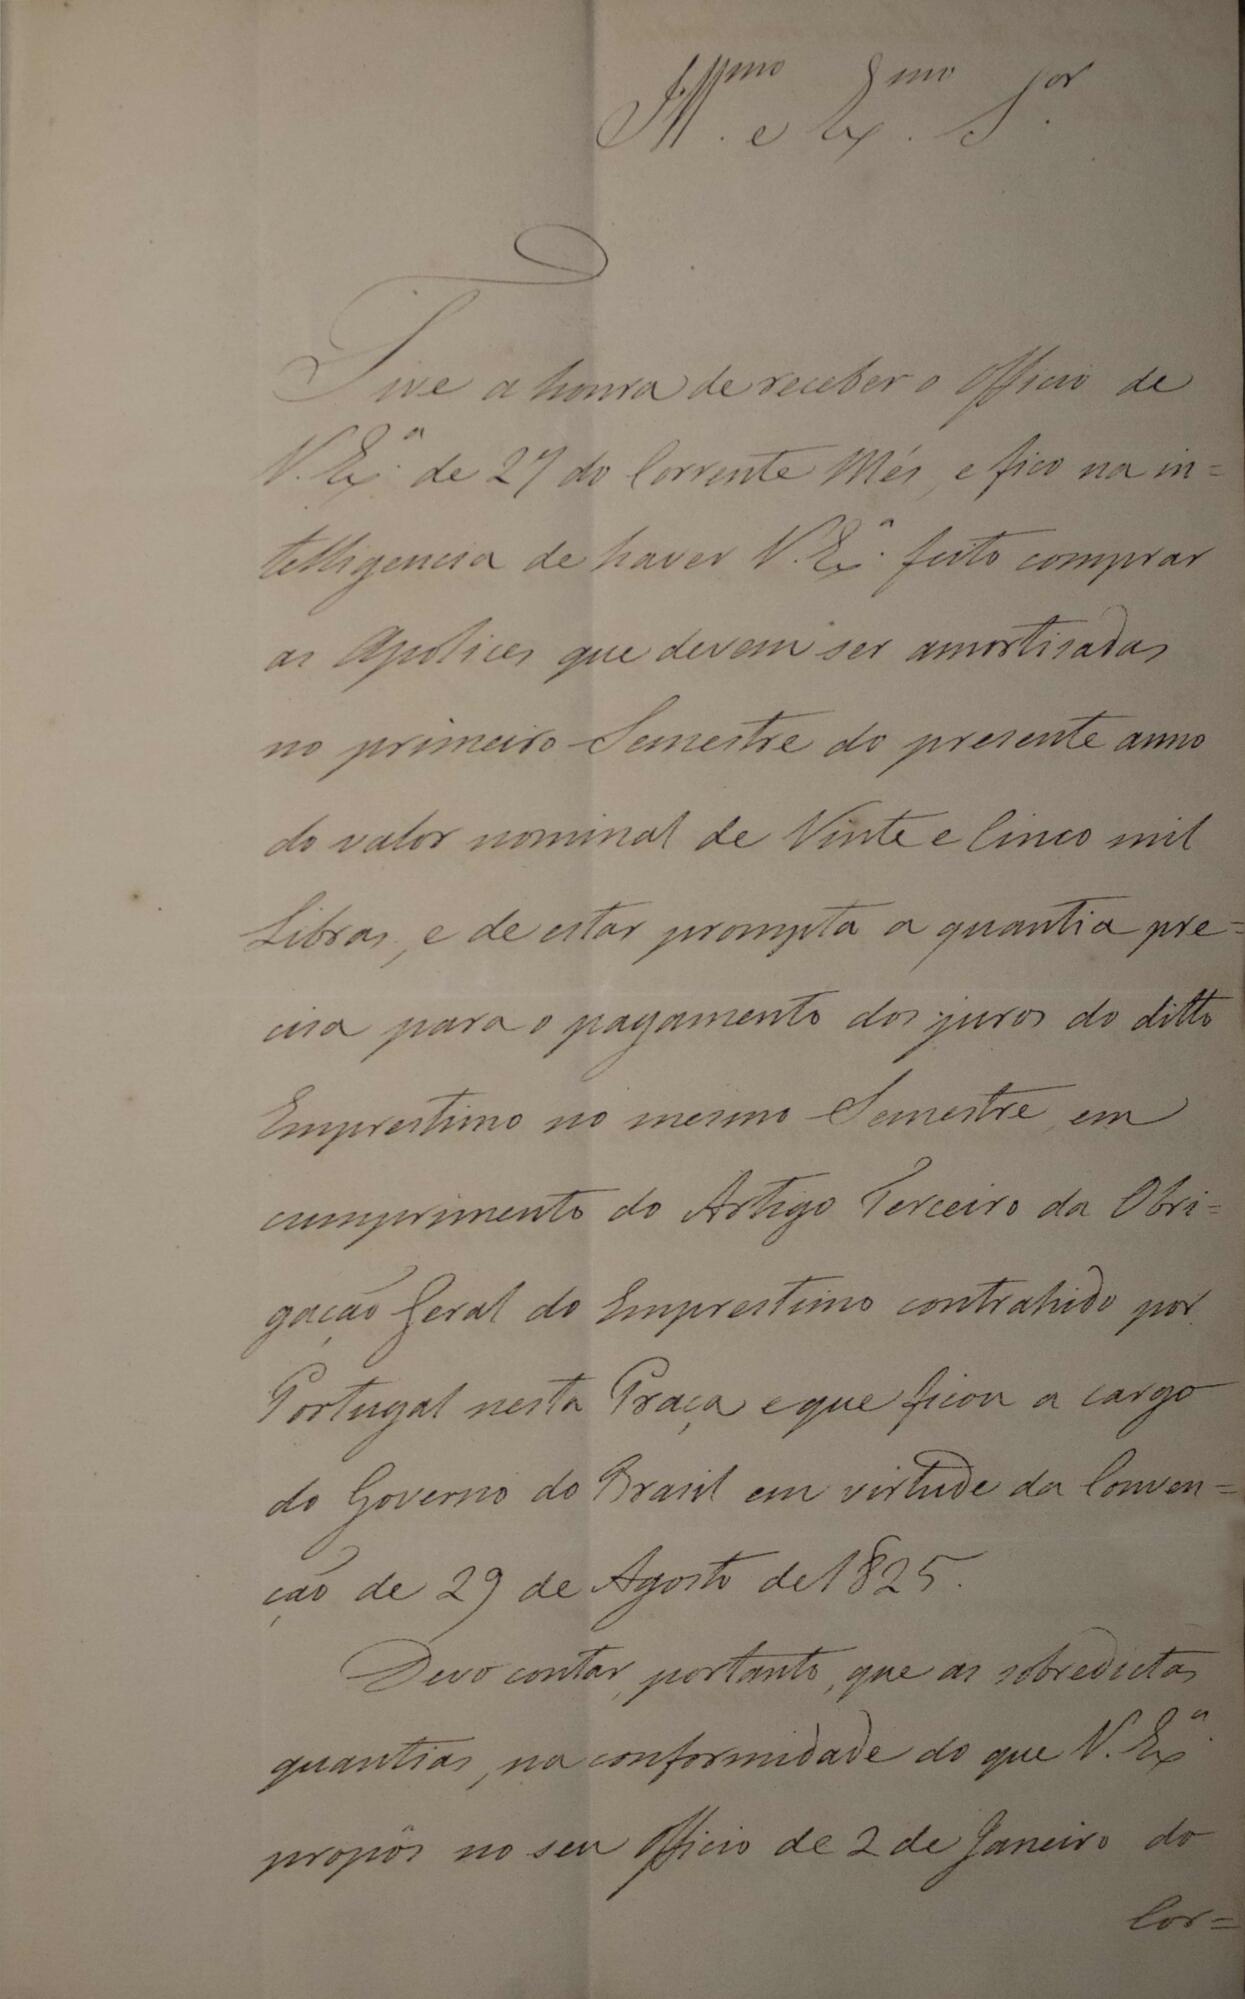 Ill.mo e Ex.mo S.or
Tive a honra de receber o Officio de
V. Ex.a de 27 do Corrente Més, e fico na in=
telligencia de haver V. Ex.a feito comprar
as Apolices que devem ser amortisadas
no primeiro Semestre do presente anno
do valor nominal de Vinte e Cinco mil
Libras, e de estar prompta a quantia pre=
cisa para o pagamento dos juros do ditto
Emprestimo no mesmo Semestre, em
cumprimento do Artigo Terceiro da Obri=
gação Geral do Emprestimo contrahido por
Portugal nesta Praça e que ficou a cargo
do Governo do Brasil em virtude da Conven=
ção de 29 de Agosto de 1825.
Devo contar, portanto, que as sobredictas
quantias, na conformidade do que V. Ex.a
propôs no seu Officio de 2 de Janeiro do
Cor=